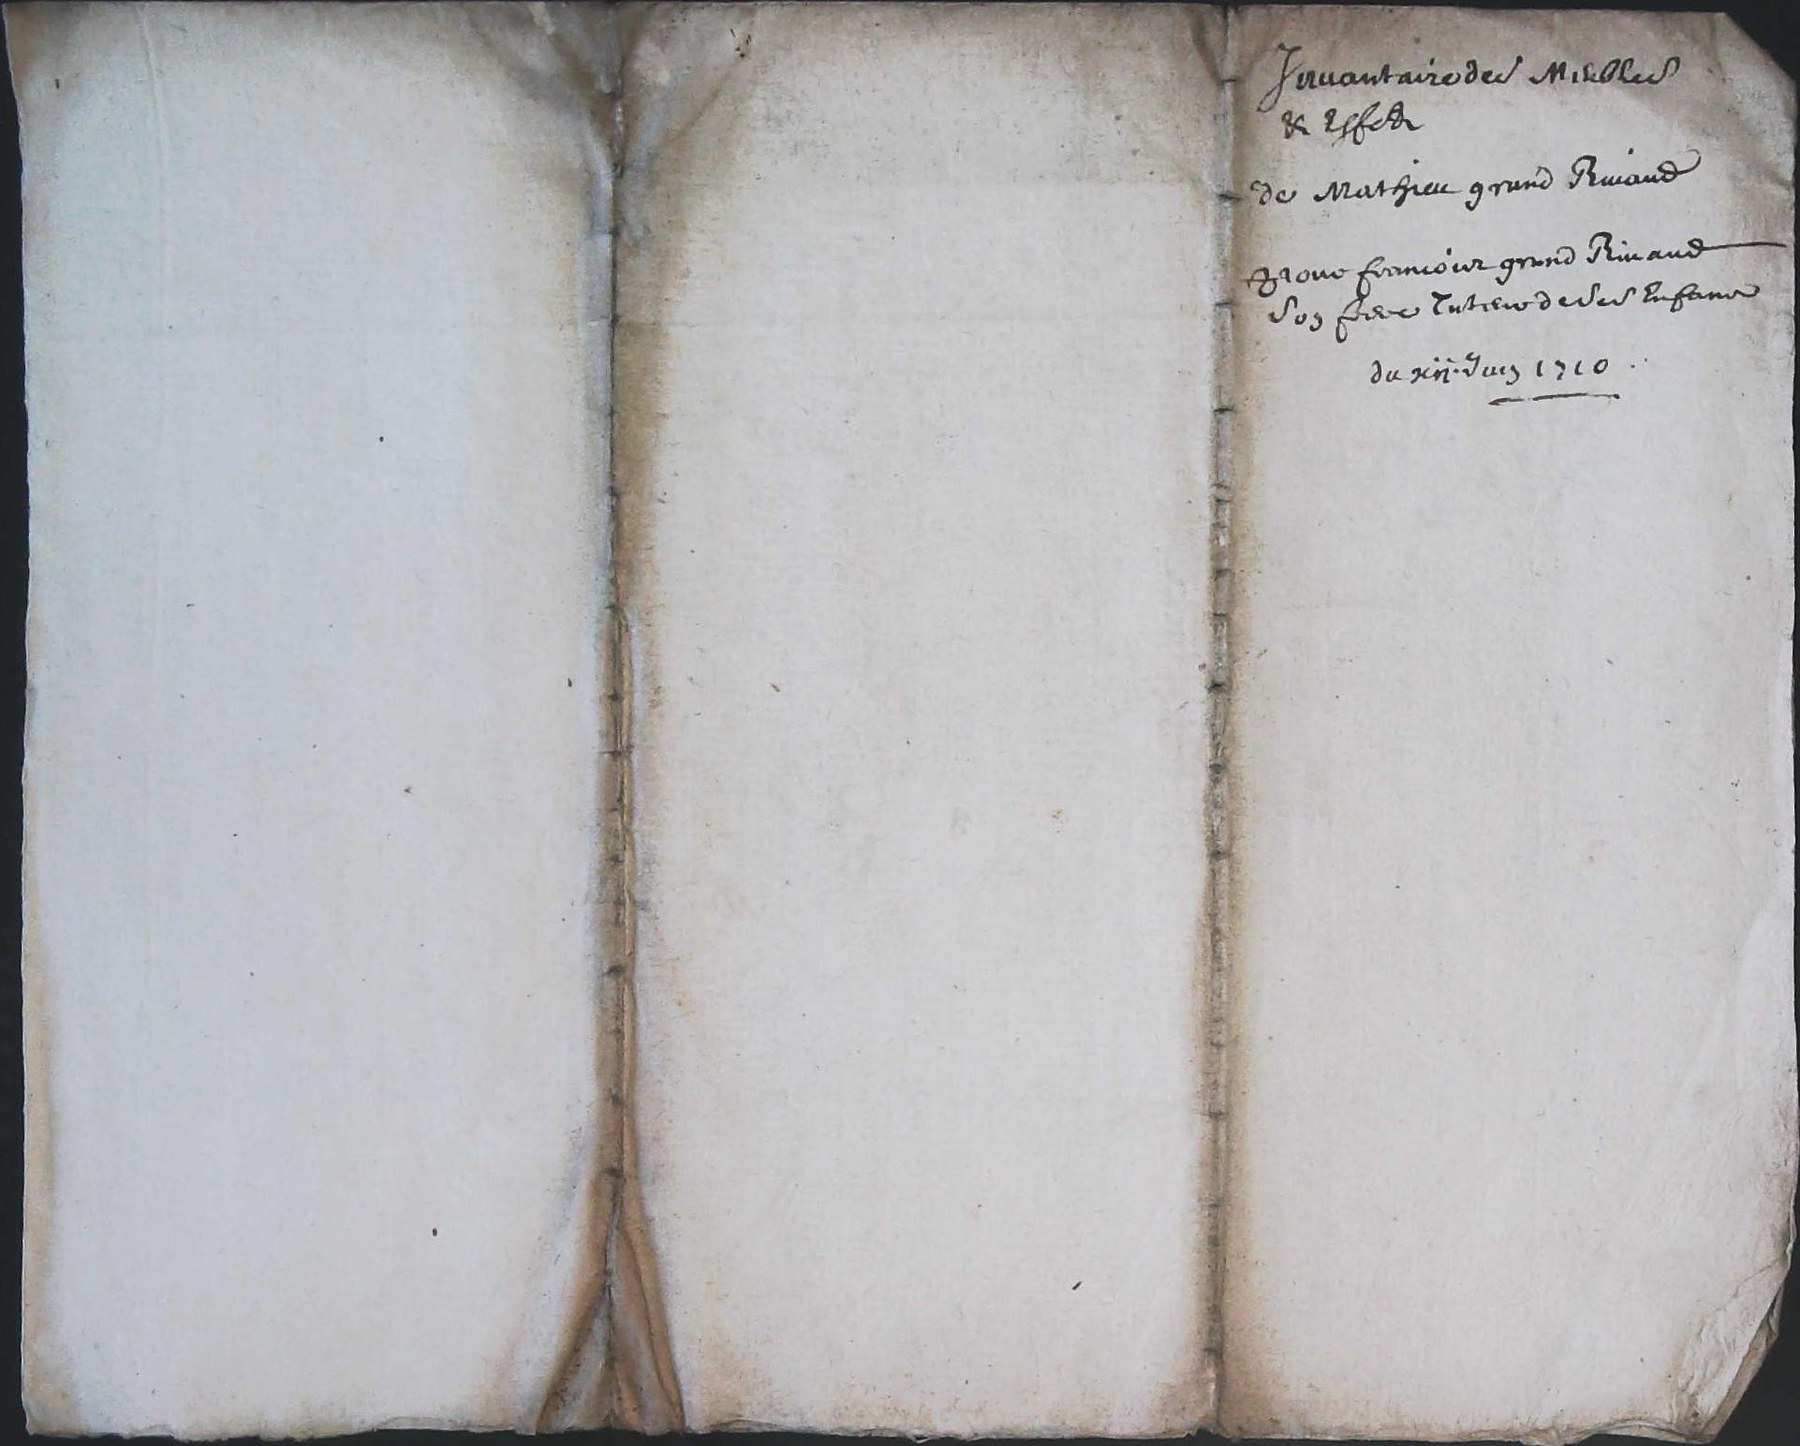 Inuantaire des Meubles
& Effects
de Mathieu grand Riuaud
pour francois grand Riuaud
son frere Tuteur de ses Enfans
du xii Juin 1710